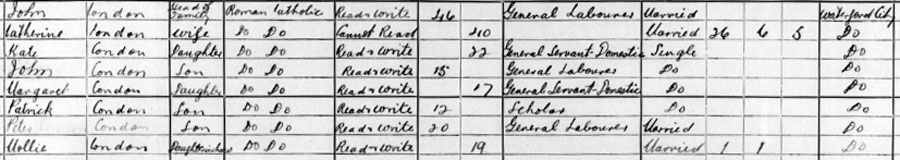 John Condon Head of Family Roman Catholic Read & write 46 General Labourer Married Waterford City
Catherine Condon Wife Do Do Cannot Read 40 Married 26 6 5 Do
Kate Condon Daughter Do Do Read & write 22 General Servant-Domestic Single Do
John Condon Son Do Do Read & write 15 General Labourer Do Do
Margaret Condon Daughter Do Do Read & write 17 General Servant-Domestic Do Do
Patrick Condon Son Do Do Read & write 12 Scholar Do Do
Peter Condon Son Do Do Read & write 20 General Labourer Married Do
Mollie Condon Do Do Read & write 19 Married 1 1 Do